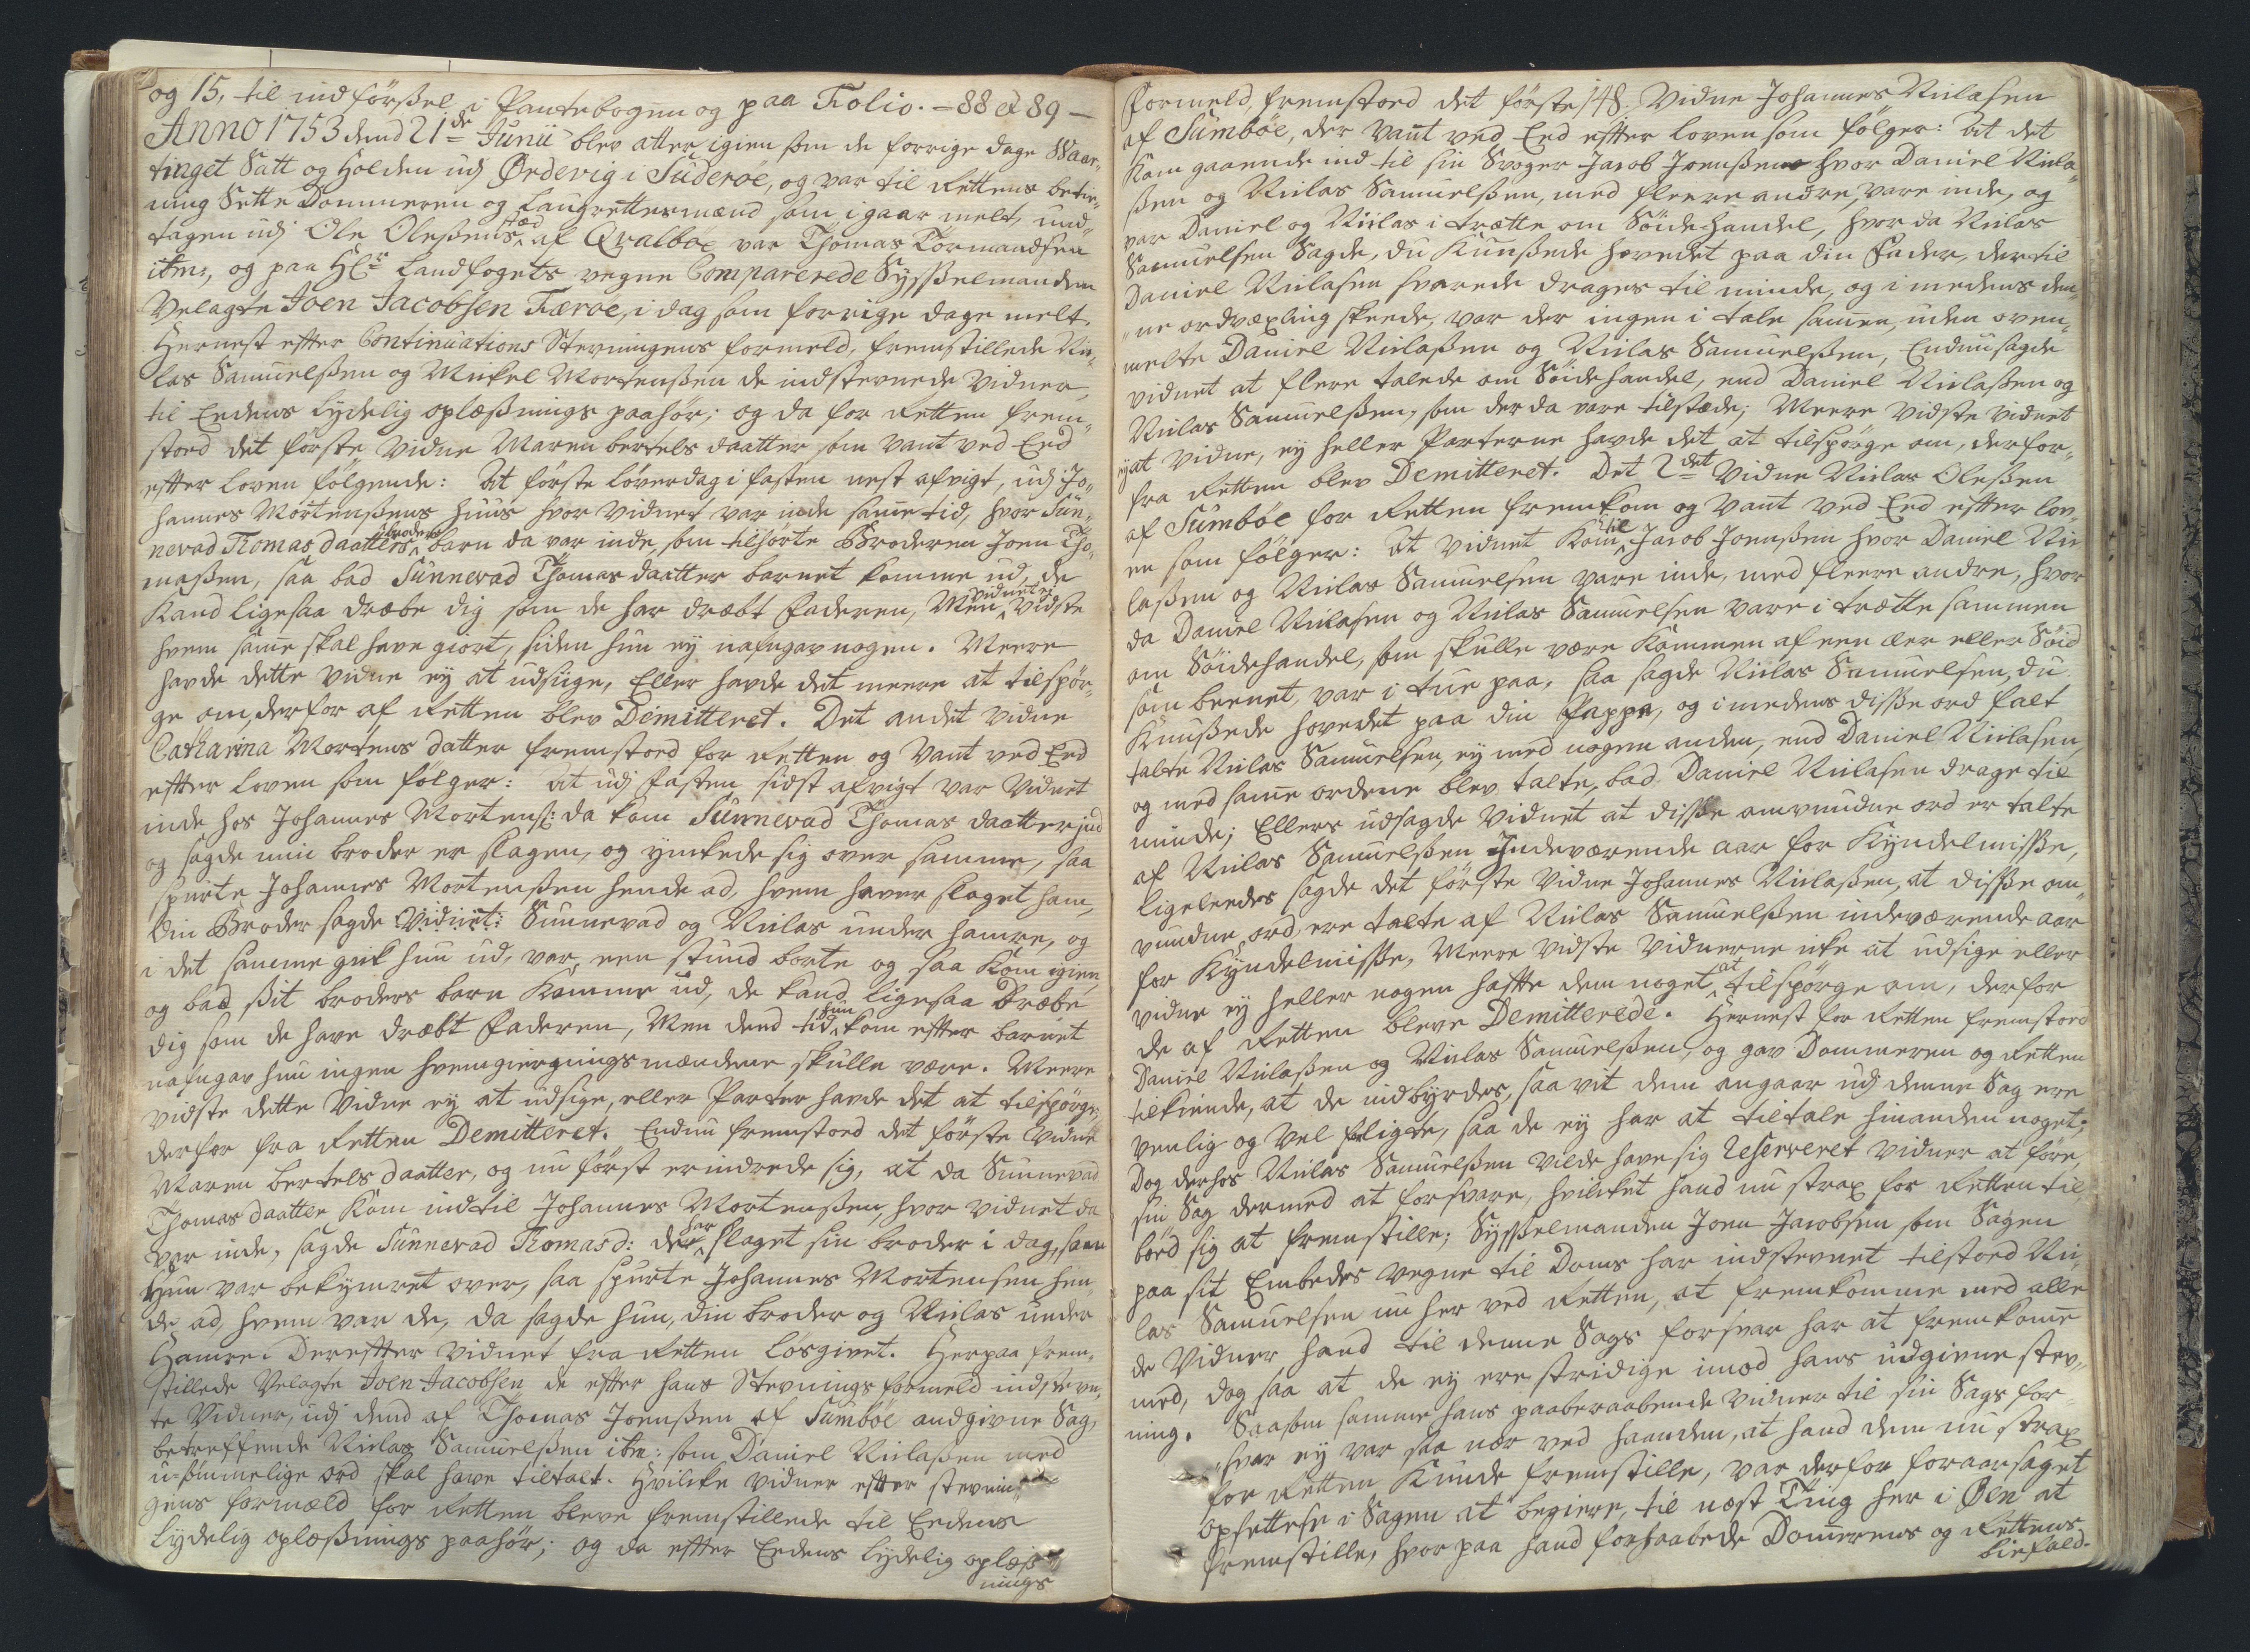 og 15, til indførßel i Pantebogen og paa Folio. – 88 et 89 –
Anno 1753 dend 21de Junii blev atter igien som de forrige dage Waar„
tinget Satt og Holden udj Ørdevig i Suderøe, og var til Rettens betie„
ning Sette Dommeren og Laugrettesmænd som igaar melt, und„
tagen udj Ole Oleßens stæd af Qvalbøe var Thomas Tormandsen
itm:, og paa Hr: Landfogets vegne Comparerede Sysßelmanden
Velagte Joen Jacobsen Færøe, i dag som forrige dage melt.
Hernest effter Continuations Stevningens formeld, fremstillede Ni„
las Samuelßen og Mikel Mortenßen de indstevnede Vidner,
til Eedens lydelig oplæßnings paahør; og da for Retten frem„
stoed det første Vidne Maren bertels daatter som vant ved Eed
effter loven følgende: At første løverdag i fasten nest afvigt, udj Jo„
hannes Mortenßens huus hvor vidnet var inde same tid, hvor Sun„
nevad Thomas daatters broders barn da var inde, som tilhørte Broderen Joen Tho„
maßen, saa bad Sunnevad Thomas daatter barnet komme ud, de
Kand ligesaa dræbe dig som de har dræbt Faderen, Men vidnet ey vidste
hvem same skal have giort, siden hun ey nafngav nogen. Meere
havde dette vidne ey at udsiige, Eller havde det meere at tilspør„
ge om, derfor af Retten blev Dimitteret. Det andet vidne
Catharina Mortens datter fremstoed for Retten og vant ved Eed
effter loven som følger: At udj fasten sidst afvigt var Vidnet
inde hos Johannes Mortenß: da kom Sunnevad Thomas daatter jnd
og sagde min broder er slagen, og ynkede sig over samme, saa
spurte Johannes Mortenßen hende ad, hvem haver slaget ham,
Din Broder sagde Vidnet: Sunnevad og Niclas under hamre, og
i det samme gik hun ud, var een stund borte og saa kom igien,
og bad sit broders barn Komme ud, de kand ligesaa Dræbe
dig som de have dræbt Faderen, Men dend tid hun kom effter barnet
nafngav hun ingen hvem giernings mændene skulle være. Meere
vidste dette Vidne ey at udsige, eller Parter havde det at tilspørge,
derfor fra Retten Demitteret. Endnu fremstoed det første Vidne
Maren bertels daatter, og nu først erindrede sig, at da Sunnevad
Thomas daatter kom ind til Johannes Mortenßen, hvor vidnet da
var inde, sagde Sunnevad Thomasd: de har slaget sin broder i dag, som
Hun var bekymret over, saa spurte Johannes Mortensen hen„
de ad, hvem var de, da sagde hun, din broder og Niclas under
Hamre. Dereffter vidnet fra Retten løsgivet. Herpaa frem„
stillede Velagte Joen Jacobsen de effter hans Stevnings formeld indstevn„
te Vidner, udj dend af Thomas Joenßen af Sumbøe andgivne Sag,
betreffende Niclas Samuelßen itm: som Daniel Niclaßen med
u-sømmelige ord skal have tiltalt. Hvilcke vidner effter stevnin„
gens formæld for Retten bleve fremstillede til Eedens
lydelig oplæßnings paahør; og da effter Eedens lydelig oplæß„
nings
Formeld, fremstoed det første 148. Vidne Johannes Niclasen
af Sumbøe, der vant ved Eed effter loven som følger: At det
Kom gaaende ind til sin Svoger Jacob Joenßen hvor Daniel Nicla„
ßen og Niclas Samuelßen, med fleere andre, vare inde, og
var Daniel og Niclas i trette om Söidehandel, hvor da Niclas
Samuelsen Sagde, du Knußede hovedet paa din Fader, dertil
Daniel Niclasen svarede drages til minde, og i medens den„
„ne ordvexling skeede, var der ingen i tale samen, uden oven„
melte Daniel Niclaßen og Niclas Samuelßen, Endnu sagde
vidnet at flere talede om Söidehandel, end Daniel Niclaßen og
Niclas Samuelßen, som der da vare tilstæde; Meere vidste vidnet
ey at vidne, ey heller Parterne havde det at tilspørge om, derfor„
fra Retten blev Demitteret. Det 2det Vidne Niclas Oleßen
af Sumbøe for Retten fremkom og vant ved Eed effter lov„
en som følger: At vidnet kom til Jacob Joenßen hvor Daniel Nic
laßen og Niclas Samuelsen vare inde, med fleere andre, hvor
da Daniel Niclasen og Niclas Samuelsen vare i trætte sammen
om Söidehandel, som skulle være kommen af een Lær eller Söid
som beenet, var i tue paa, saa sagde Niclas Samuelsen, du
Knußede hovedet paa din Pappa, og i medens disße ord falt
talte Niclas Samuelsen, ey med nogen anden, end Daniel Niclasen,
og med same ordene blev talte, bad Daniel Niclasen drage til
minde; Ellers udsagde Vidnet at disße omvundne ord er talte
af Niclas Samuelßen Indeværende aar for Kyndelmisße,
ligeleedes sagde det første Vidne Johannes Niclaßen, at disße om„
vundne ord ere talte af Niclas Samuelßen indeværende aar
for Kyndelmisße, Meere vidste Vidnerne icke at udsige eller
vidne ey heller nogen haffte dem noget at tilspørge om, derfor
de af Retten bleve Demitterede. Hernest for Retten fremstoed
Daniel Niclaßen og Niclas Samuelßen, og gav Dommeren og Retten
tilkiende, at de indbyrdes, saa vit dem angaar udj denne Sag ere
venlig og Vel forligte, saa de ey har at tiltale hinanden noget;
Dog derhos Niclas Samuelßen vilde have sig reserveret vidner at føre,
sin Sag dermed at forsvare, hvilcket hand nu strax for Retten til„
böed sig at fremstille; Sysßelmanden Joen Jacobsen som Sagen
paa sit Embedes vegne til Doms har indstevnet tilstoed Ni„
las Samuelsen nu her ved Retten, at fremkomme med alle
de Vidner hand til denne Sags forsvar har at fremkome
med, dog saa at de ey ere stridige imod hans udgivne stev„
ning. Saasom samme hans paaberaabende vidner til sin Sags for„
„svar ey var saa nær ved haanden, at hand dem nu strax
for Retten kunde fremstille, var derfor foraarsaget
opsettelse i Sagen at begiere, til næst Ting her i Øen at
fremstille, hvorpaa hand forhaabede Domerens og Rettens
biefald.